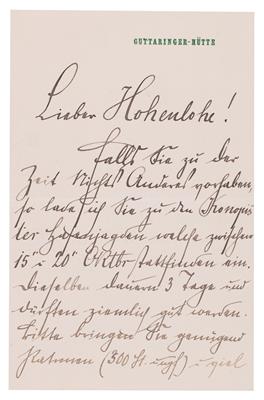 GUTTARINGER-HÜTTE
Lieber Hohenlohe!
Falls Sie zu der
Zeit Nichts Anderes vorhaben,
so lade ich Sie zu den
Hasenjagden welche zwischen
15ⁿ u 20ⁿ Oktbr stattfinden ein.
Dieselben dauern 3 Tage und
dürften ziemlich gut werden.
Bitte bringen Sie genügend
Patronen (300 St. ungf) u viel